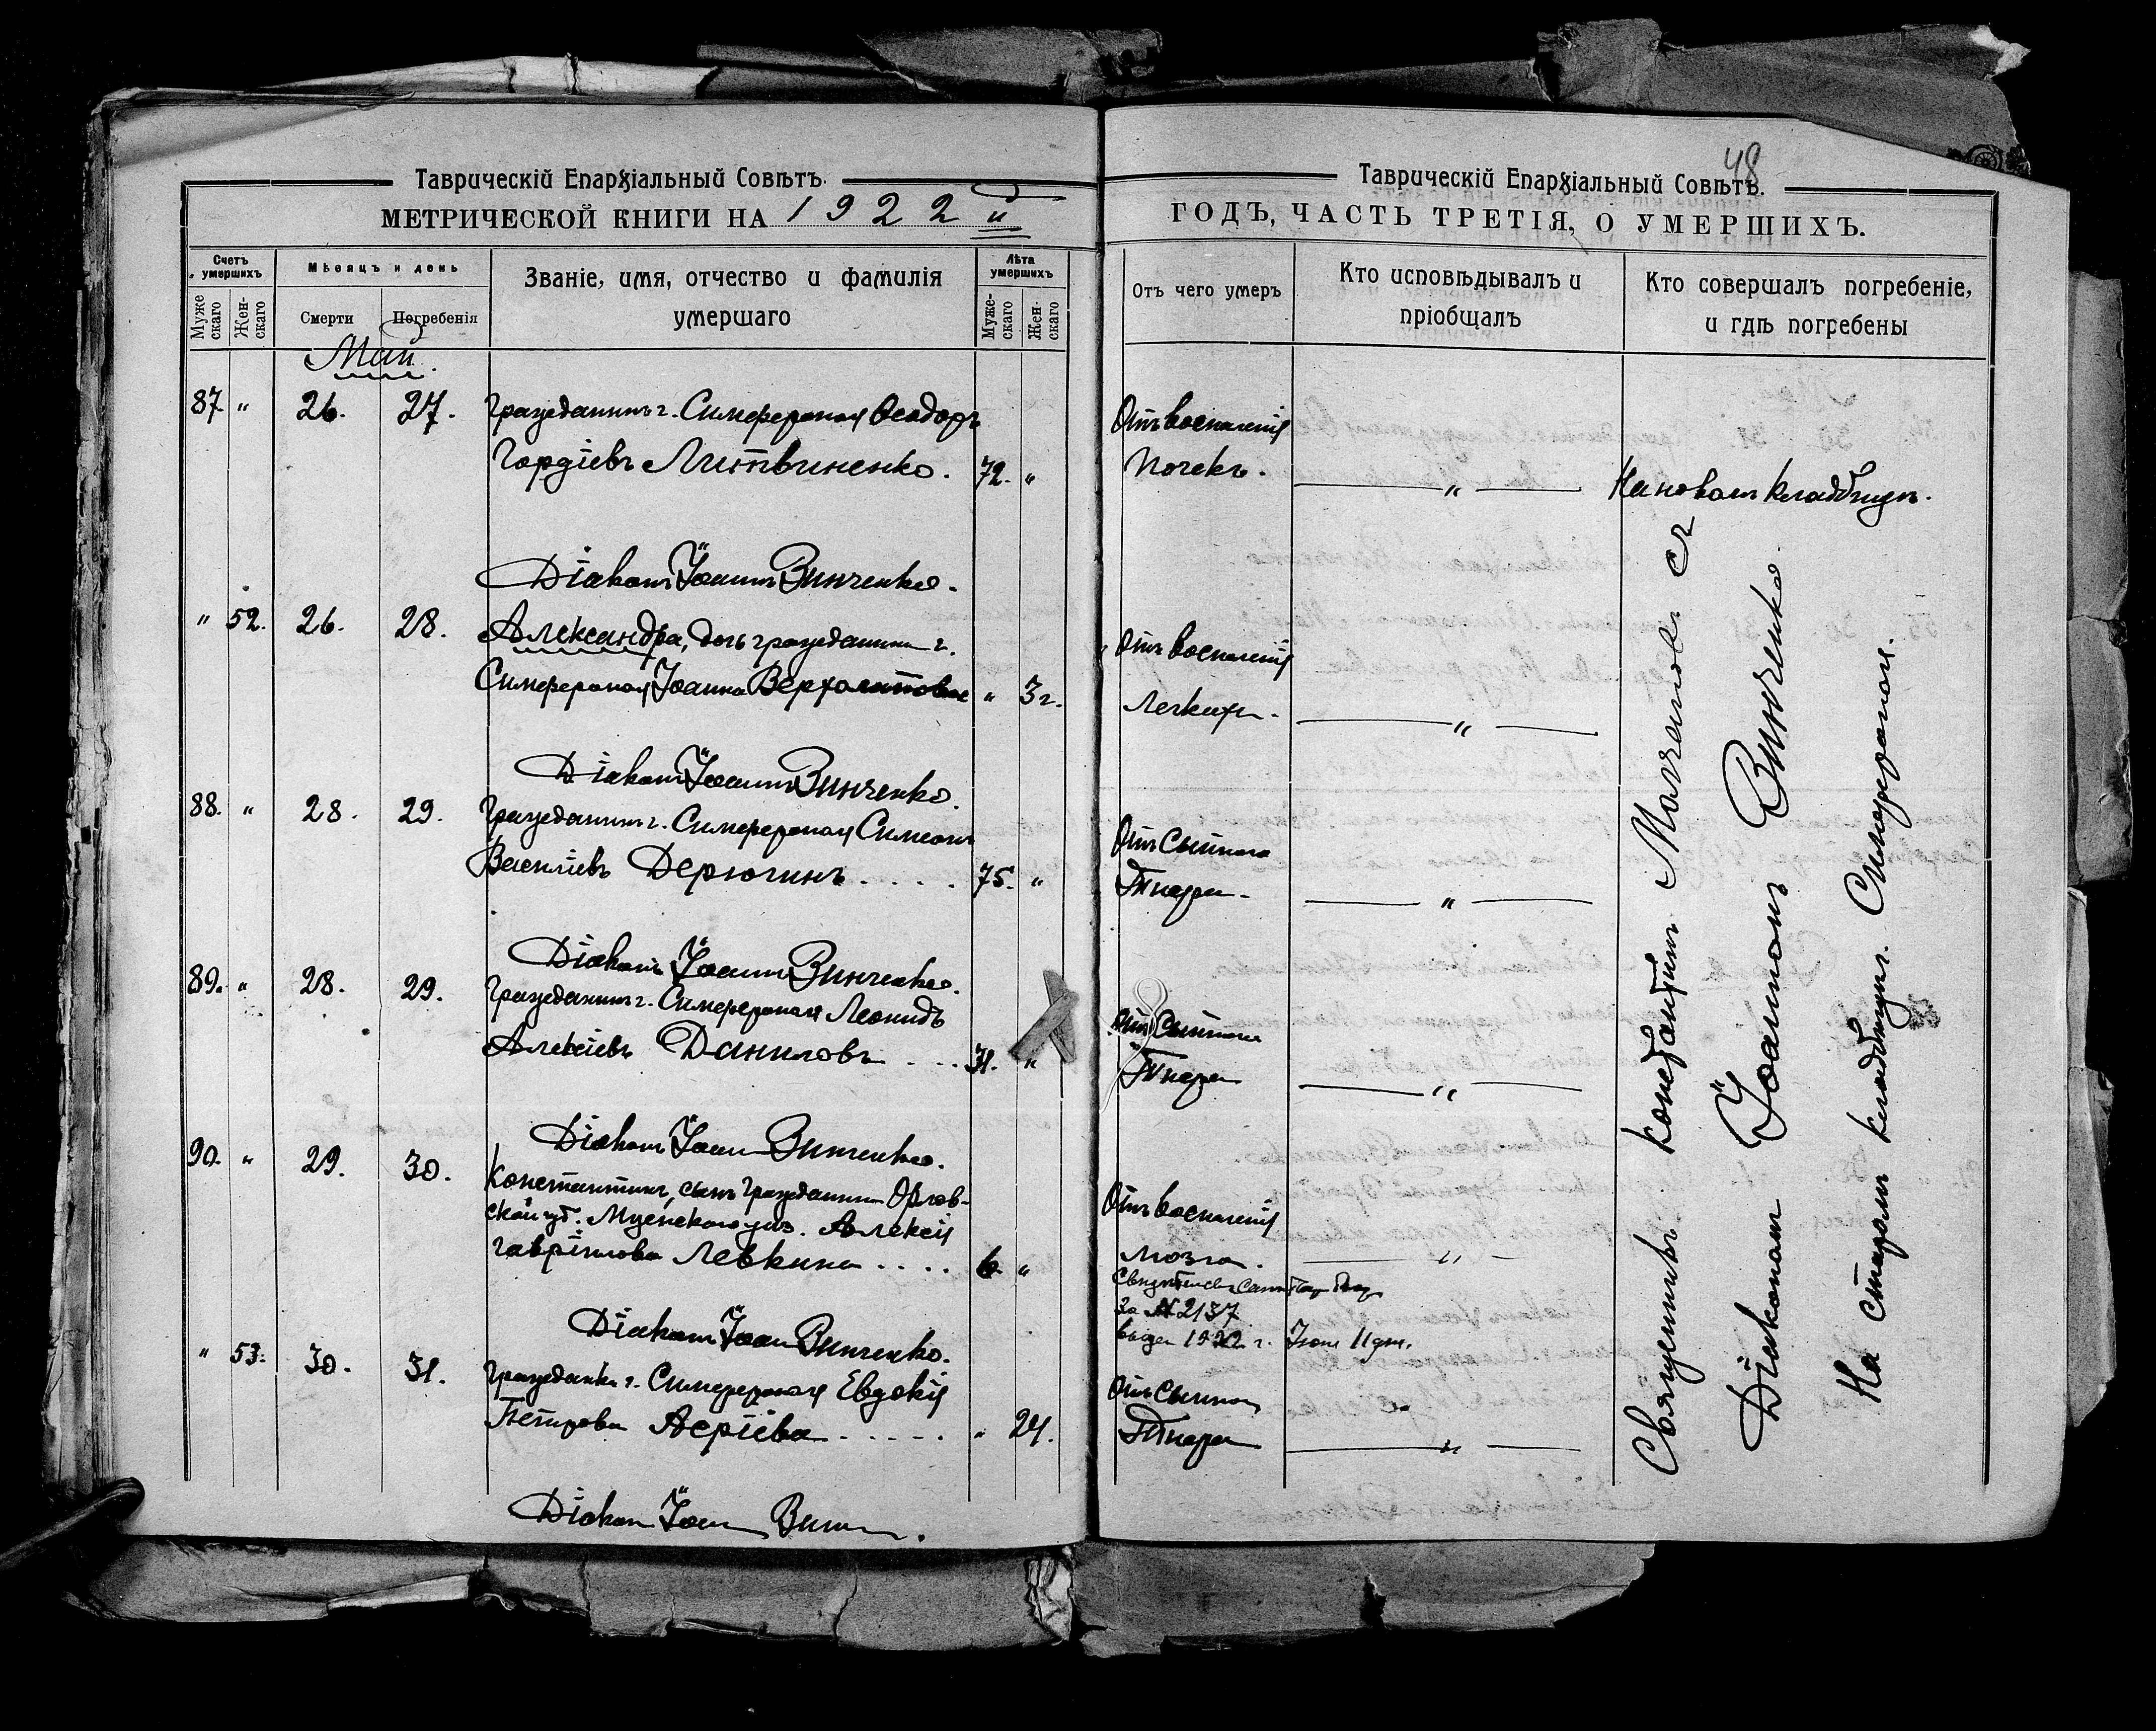 Таврическій Епархіальный Совѣтъ.
МЕТРИЧЕСКОЙ КНИГИ НА 1922 й
Счетъ умершихъ
Мѣсяцъ и день
Званіе, имя, отчество и фамилія
умершаго
Лѣта умершихъ
Мужескаго
Женскаго
Смерти
Погребенія
Мужескаго
Женскаго
Май.
87. " 26. 27. Гражданинъ г. Симферополя Ѳеодоръ
Гордіевъ Литвиненко. 72. "
Діаконъ Іоаннъ Винченко.
" 52. 26. 28. Александра, дочь гражданина г.
Симферополя Іоанна " 3 г.
Діаконъ Іоаннъ Винченко.
88. " 28. 29. Гражданинъ г. Симферополя Симеонъ
Василіевъ Дерюгинъ. . . . . 75. "
Діаконъ Іоаннъ Винченко.
89. " 28. 29. Гражданинъ г. Симферополя Леонидъ
Алексіевъ Даниловъ . . . 31. "
Діаконъ Іоаннъ Винченко.
90. " 29. 30. Константинъ, сынъ гражданина Орлов-
ской губ. Мценскаго уѣз. Алексія
Гавріилова Левкина . . . . 6. "
Діаконъ Іоаннъ Винченко.
" 53. 30. 31. Гражданка г. Симферополя Евдокія
Петрова . . . . . " 24.
Діаконъ Іоаннъ Винченко.
48
Таврическій Епархіальный Совѣтъ.
ГОДЪ, ЧАСТЬ ТРЕТІЯ, О УМЕРШИХЪ.
Отъ чего умеръ
Кто исповѣдывалъ и
пріобщалъ
Кто совершалъ погребеніе,
и гдѣ погребены
Отъ воспаленія
Почекъ. "
На новомъ кладбищѣ.
Отъ воспаленія
Легкихъ. "
Отъ Сыпного
Тифа. "
Отъ Сыпного
Тифа "
Отъ воспаленія
мозга. "
за № 2137
1922 г. Іюня 11 дня.
Отъ Сыпного
Тифа "
Священникъ Константинъ съ
Діакономъ Іоанномъ Винченко.
На старомъ кладбищѣ г. Симферополя.